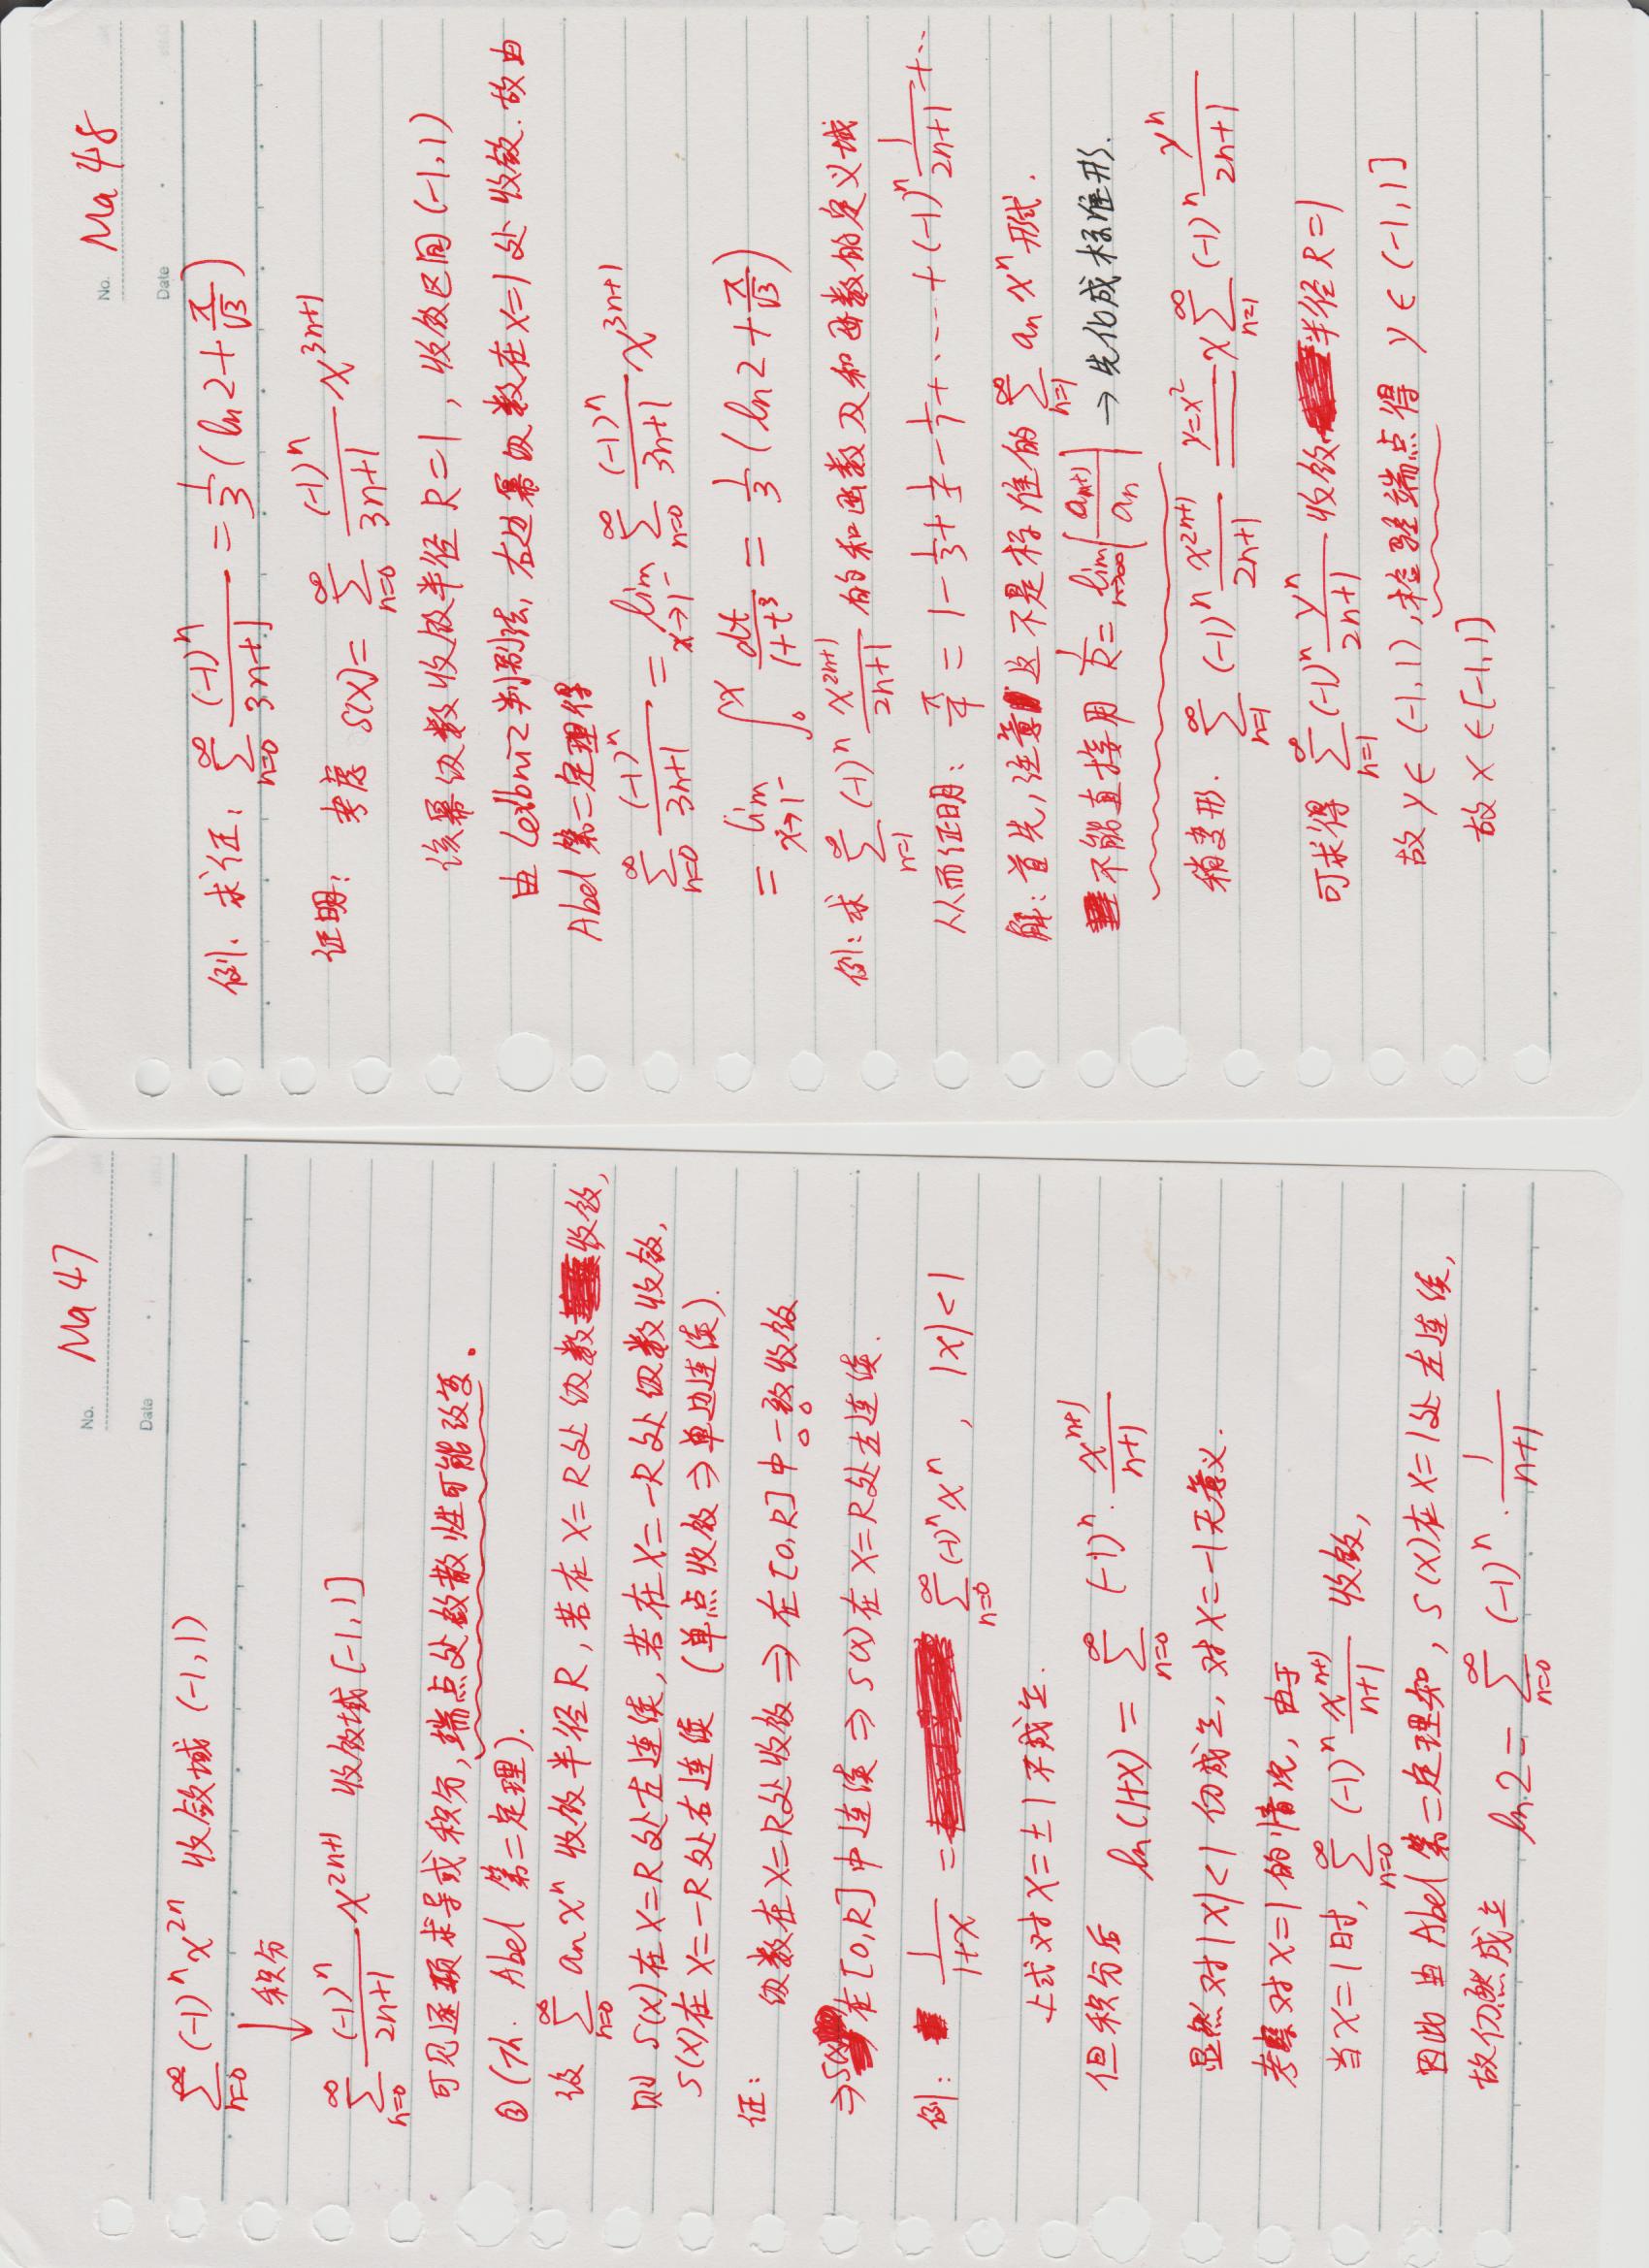 No. Ma 47
Date
∑_{n=0}^{∞} (-1)^n x^{2n} 收敛域 (-1,1)
↓ 积分
∑_{n=0}^{∞} (-1)^n/(2n+1) x^{2n+1} 收敛域 [-1,1]
可见逐项求导或积分,端点处敛散性可能改变。
③ (Th. Abel 第二定理).
设 ∑_{n=0}^{∞} a_n x^n 收敛半径 R, 若在 x=R 处级数收敛,
则 S(x) 在 x=R 处左连续, 若在 x=-R 处级数收敛,
S(x) 在 x=-R 处右连续 (单点收敛 ⇒ 单边连续).
证:
级数在 x=R 处收敛 ⇒ 在 [0,R] 中一致收敛
⇒ S(x) 在 [0,R] 中连续 ⇒ S(x) 在 x=R 处左连续.
例: 1/(1+x) = ∑_{n=0}^{∞} (-1)^n x^n , |x|<1
上式对 x=±1 不成立.
但积分后 ln(1+x) = ∑_{n=0}^{∞} (-1)^n · x^{n+1}/(n+1)
显然对 |x|<1 仍成立, 对 x=-1 无意义.
考察对 x=1 的情况, 由于
当 x=1 时, ∑_{n=0}^{∞} (-1)^n x^{n+1}/(n+1) 收敛,
因此由 Abel 第二定理知, S(x) 在 x=1 处左连续,
故仍然成立 ln 2 = ∑_{n=0}^{∞} (-1)^n · 1/(n+1)
No. Ma 48
Date
例. 求证: ∑_{n=0}^{∞} (-1)^n/(3n+1) = 1/3 (ln 2 + π/√3)
证明: 考虑 S(x) = ∑_{n=0}^{∞} (-1)^n/(3n+1) x^{3n+1}
该幂级数收敛半径 R=1, 收敛区间 (-1,1)
由 Leibniz 判别法, 右边幂级数在 x=1 处收敛. 故由
Abel 第二定理得
∑_{n=0}^{∞} (-1)^n/(3n+1) = lim_{x→1^-} ∑_{n=0}^{∞} (-1)^n/(3n+1) x^{3n+1}
= lim_{x→1^-} ∫_0^x dt/(1+t^3) = 1/3 (ln 2 + π/√3)
例: 求 ∑_{n=1}^{∞} (-1)^n x^{2n+1}/(2n+1) 的和函数及和函数的定义域
从而证明: π/4 = 1 - 1/3 + 1/5 - 1/7 + ··· + (-1)^n 1/(2n+1) + ···
解: 首先, 注意这不是标准的 ∑_{n=1}^{∞} a_n x^n 形式.
不能直接用 1/R = lim_{n→∞} |a_{n+1}/a_n| → 先化成标准形.
稍变形. ∑_{n=1}^{∞} (-1)^n x^{2n+1}/(2n+1) =(y=x^2)= x ∑_{n=1}^{∞} (-1)^n y^n/(2n+1)
可求得 ∑_{n=1}^{∞} (-1)^n y^n/(2n+1) 收敛半径 R=1
故 y∈(-1,1), 检验端点得 y∈(-1,1]
故 x∈[-1,1]